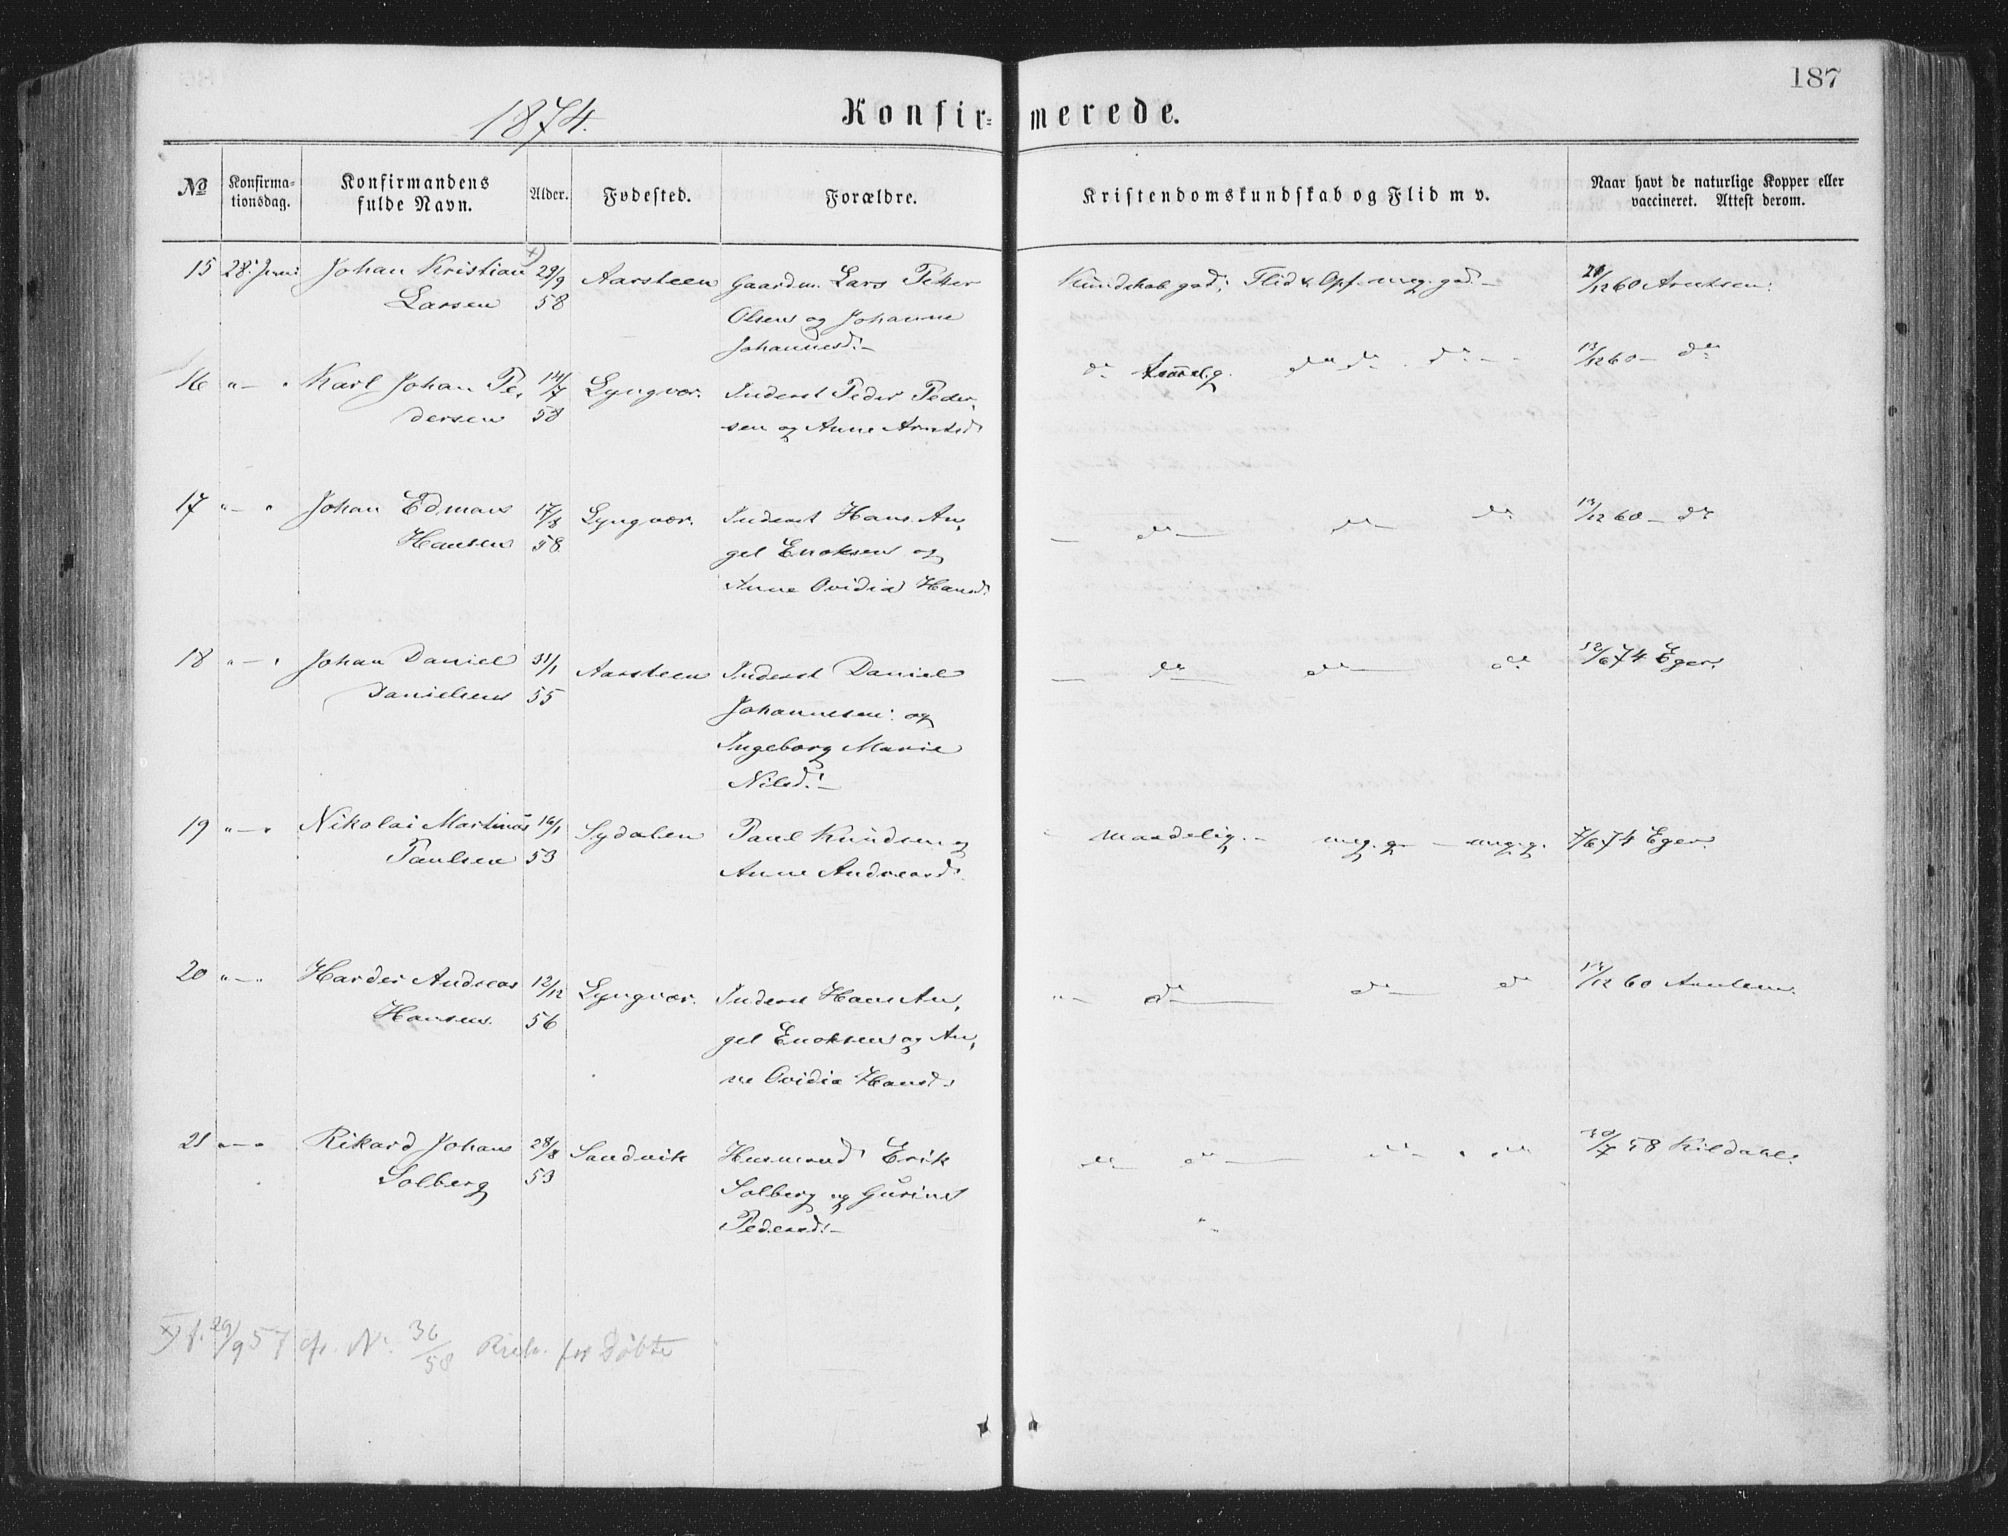 187
1874. Konfir= merede.
No Konfirma= tionsdag. Konfirmandens fulde Navn. Alder. Fødested. Forældre. Kristendomskundskab og Flid m v. Naar havt de naturlige Kopper eller vaccineret. Attest derom.
15 28. Juni Johan Kristian x) 29/9 Aarsteen Gaardm. Lars Peter Kundskab god; Flid & Opf. meg. god. – /12 60 Arntsen.
Larsen 58 Olsen og Johanne
Johannesd. –
16 " – " Karl Johan Pe, 14/7 Lyngvær. Inderst Peder Peder, do temmel. g. do do. do – 13/12 60 – do
dersen 58 sen og Anne Arntsd.
17 " – " Johan Edmans 17/8 Lyngvær. Inderst Hans An, – do – do – do 13/12 60 – do
Hansen 58 gel Enoksen og
Anne Ovidia Hansd.
18 " – " Johan Daniel 31/1 Aarsteen Inderst Daniel – do – do – do 12/6 74 Eger.
Danielsen 55 Johannesen og
Ingeborg Marie
Nilsd. –
19 " – " Nikolai Martinus 16/1 Sydalen Paul Knudsen og maadelig. – meg. g. – meg. g. 7/6 74 Eger.
Paulsen 53 Anne Andreasd.
20 " – " Harder Andreas 12/12 Lyngvær. Inderst Hans An, " – do – do – do 13/12 60 Arntsen.
Hansen. 56 gel Enoksen og An,
ne Ovidia Hansd.
21 " – " Rikard Johan 28/8 Sandvik Husmand Erik do – do – do – do 30/7 58 Kildahl.
Solberg 53 Solberg og Gurine
Pedersd. –
x) f. 29/9 57 cfr. No. 36/58 for Døbte